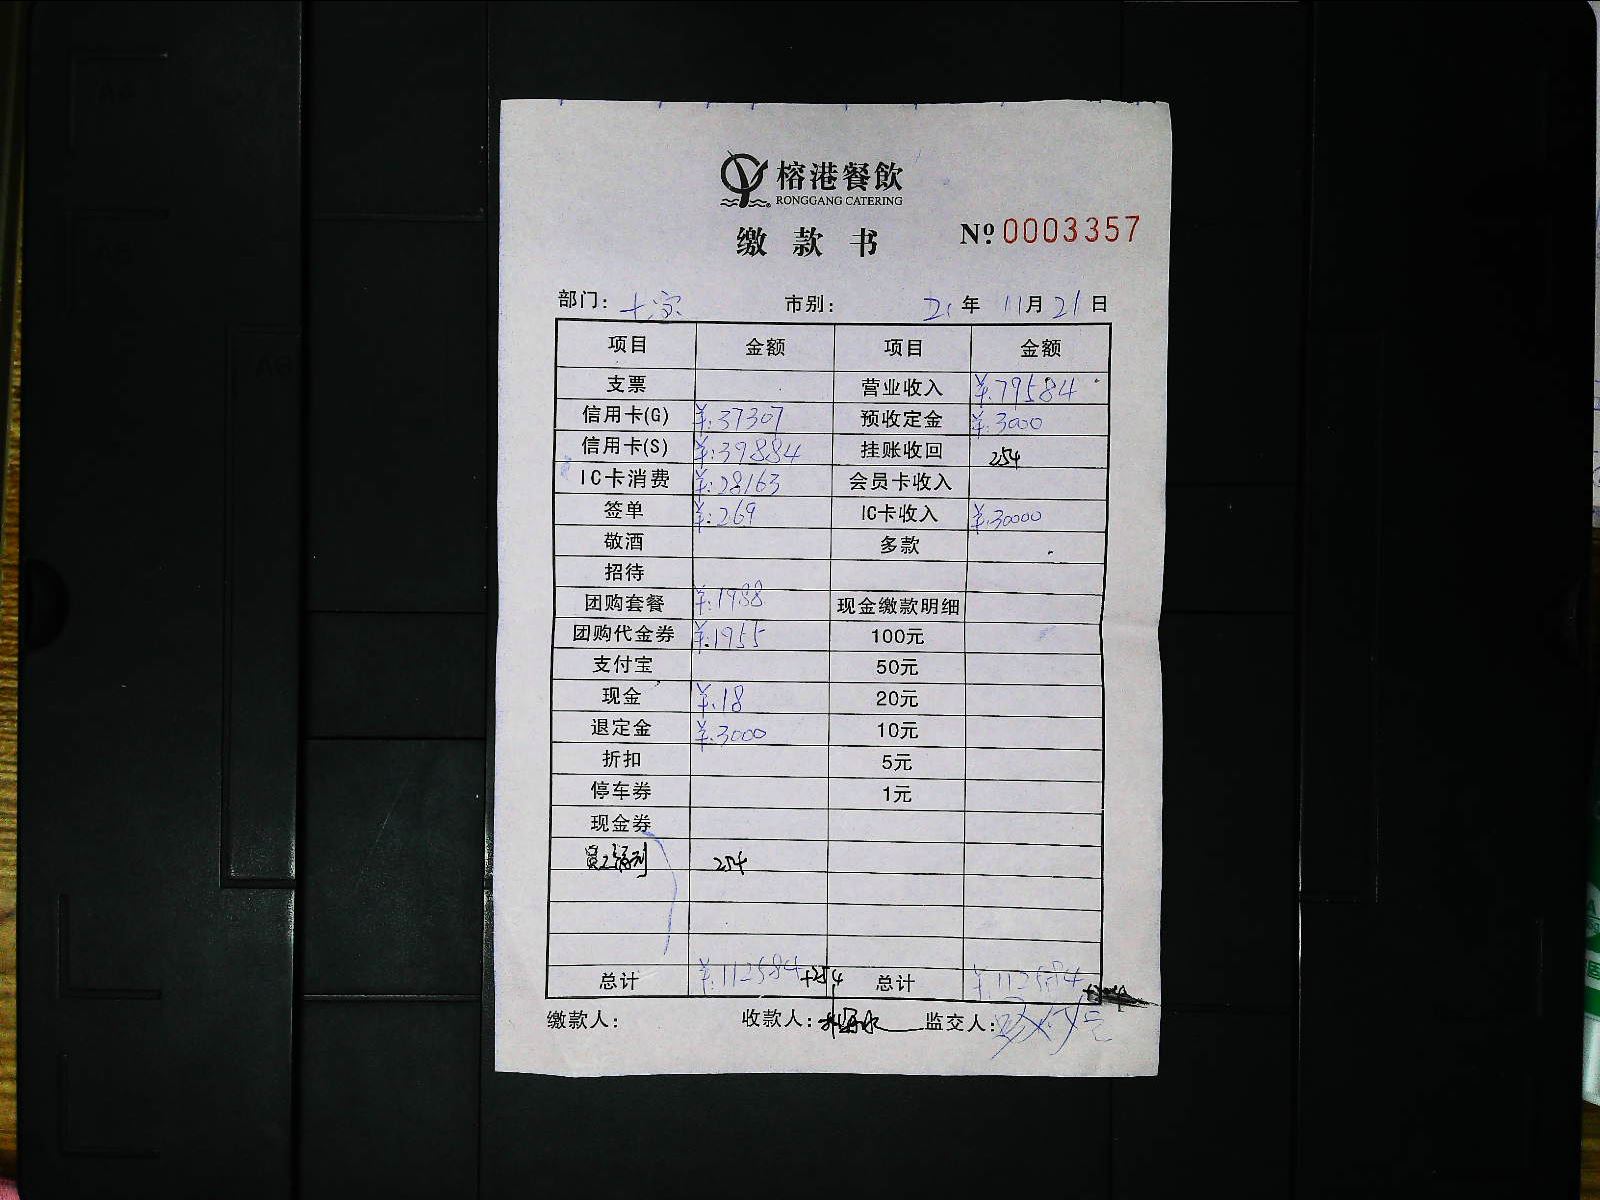 榕港餐飲
RONGGANG CATERING
缴款书
№ 0003357
部门: 市别: 21年 11月21日
项目 金额 项目 金额
支票 营业收入 ¥:79584
信用卡(G) ¥:37307 预收定金 ¥:3000
信用卡(S) ¥:39884 挂账收回 254
IC卡消费 ¥:28163 会员卡收入
签单 ¥:269 IC卡收入 ¥:30000
敬酒 多款
招待
团购套餐 ¥:1988 现金缴款明细
团购代金券 ¥:1955 100元
支付宝 50元
现金 ¥:18 20元
退定金 ¥:3000 10元
折扣 5元
停车券 1元
现金券
员工福利 254
总计 ¥:112584+254 总计 ¥:112584
缴款人: 收款人: 监交人: